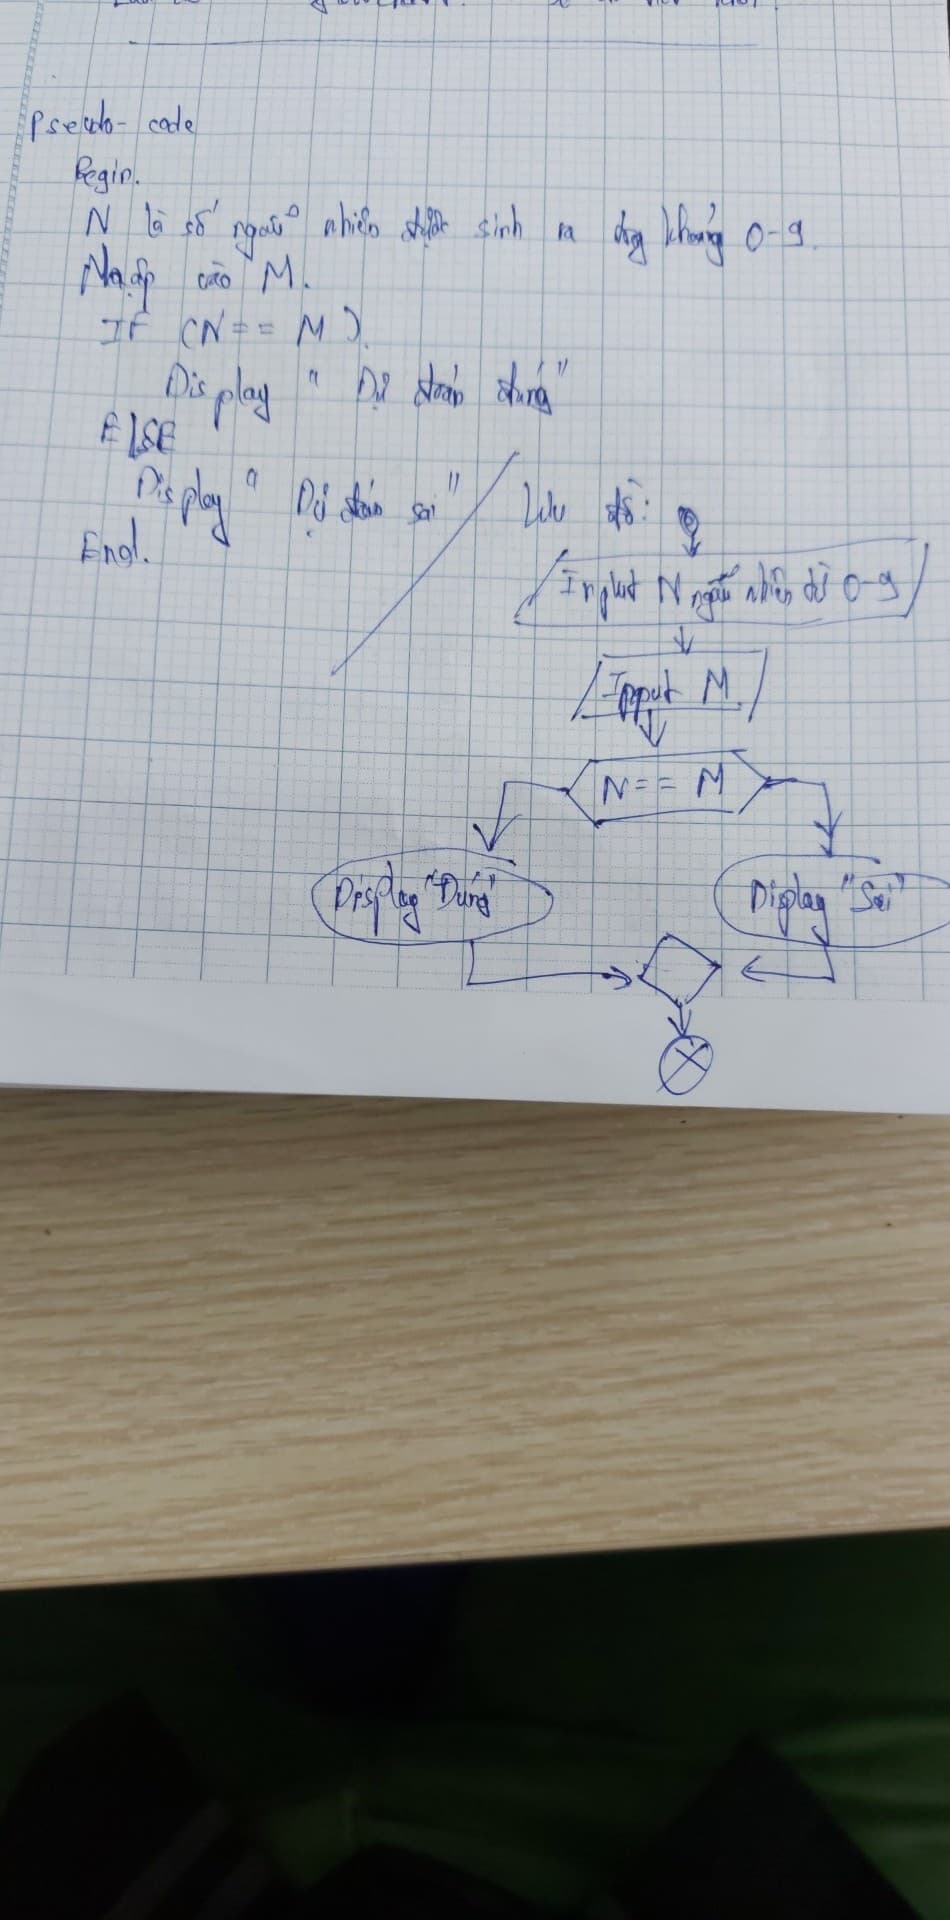 Pseudo-code
Begin.
N là số ngẫu nhiên được sinh ra trg khoảng 0-9.
Nhập vào M.
IF (N == M).
Display "Dự đoán đúng"
ELSE
Display "Dự đoán sai"
End.
Lưu đồ:
Input N ngẫu nhiên từ 0-9
Input M.
N == M
Display "Đúng"
Display "Sai"